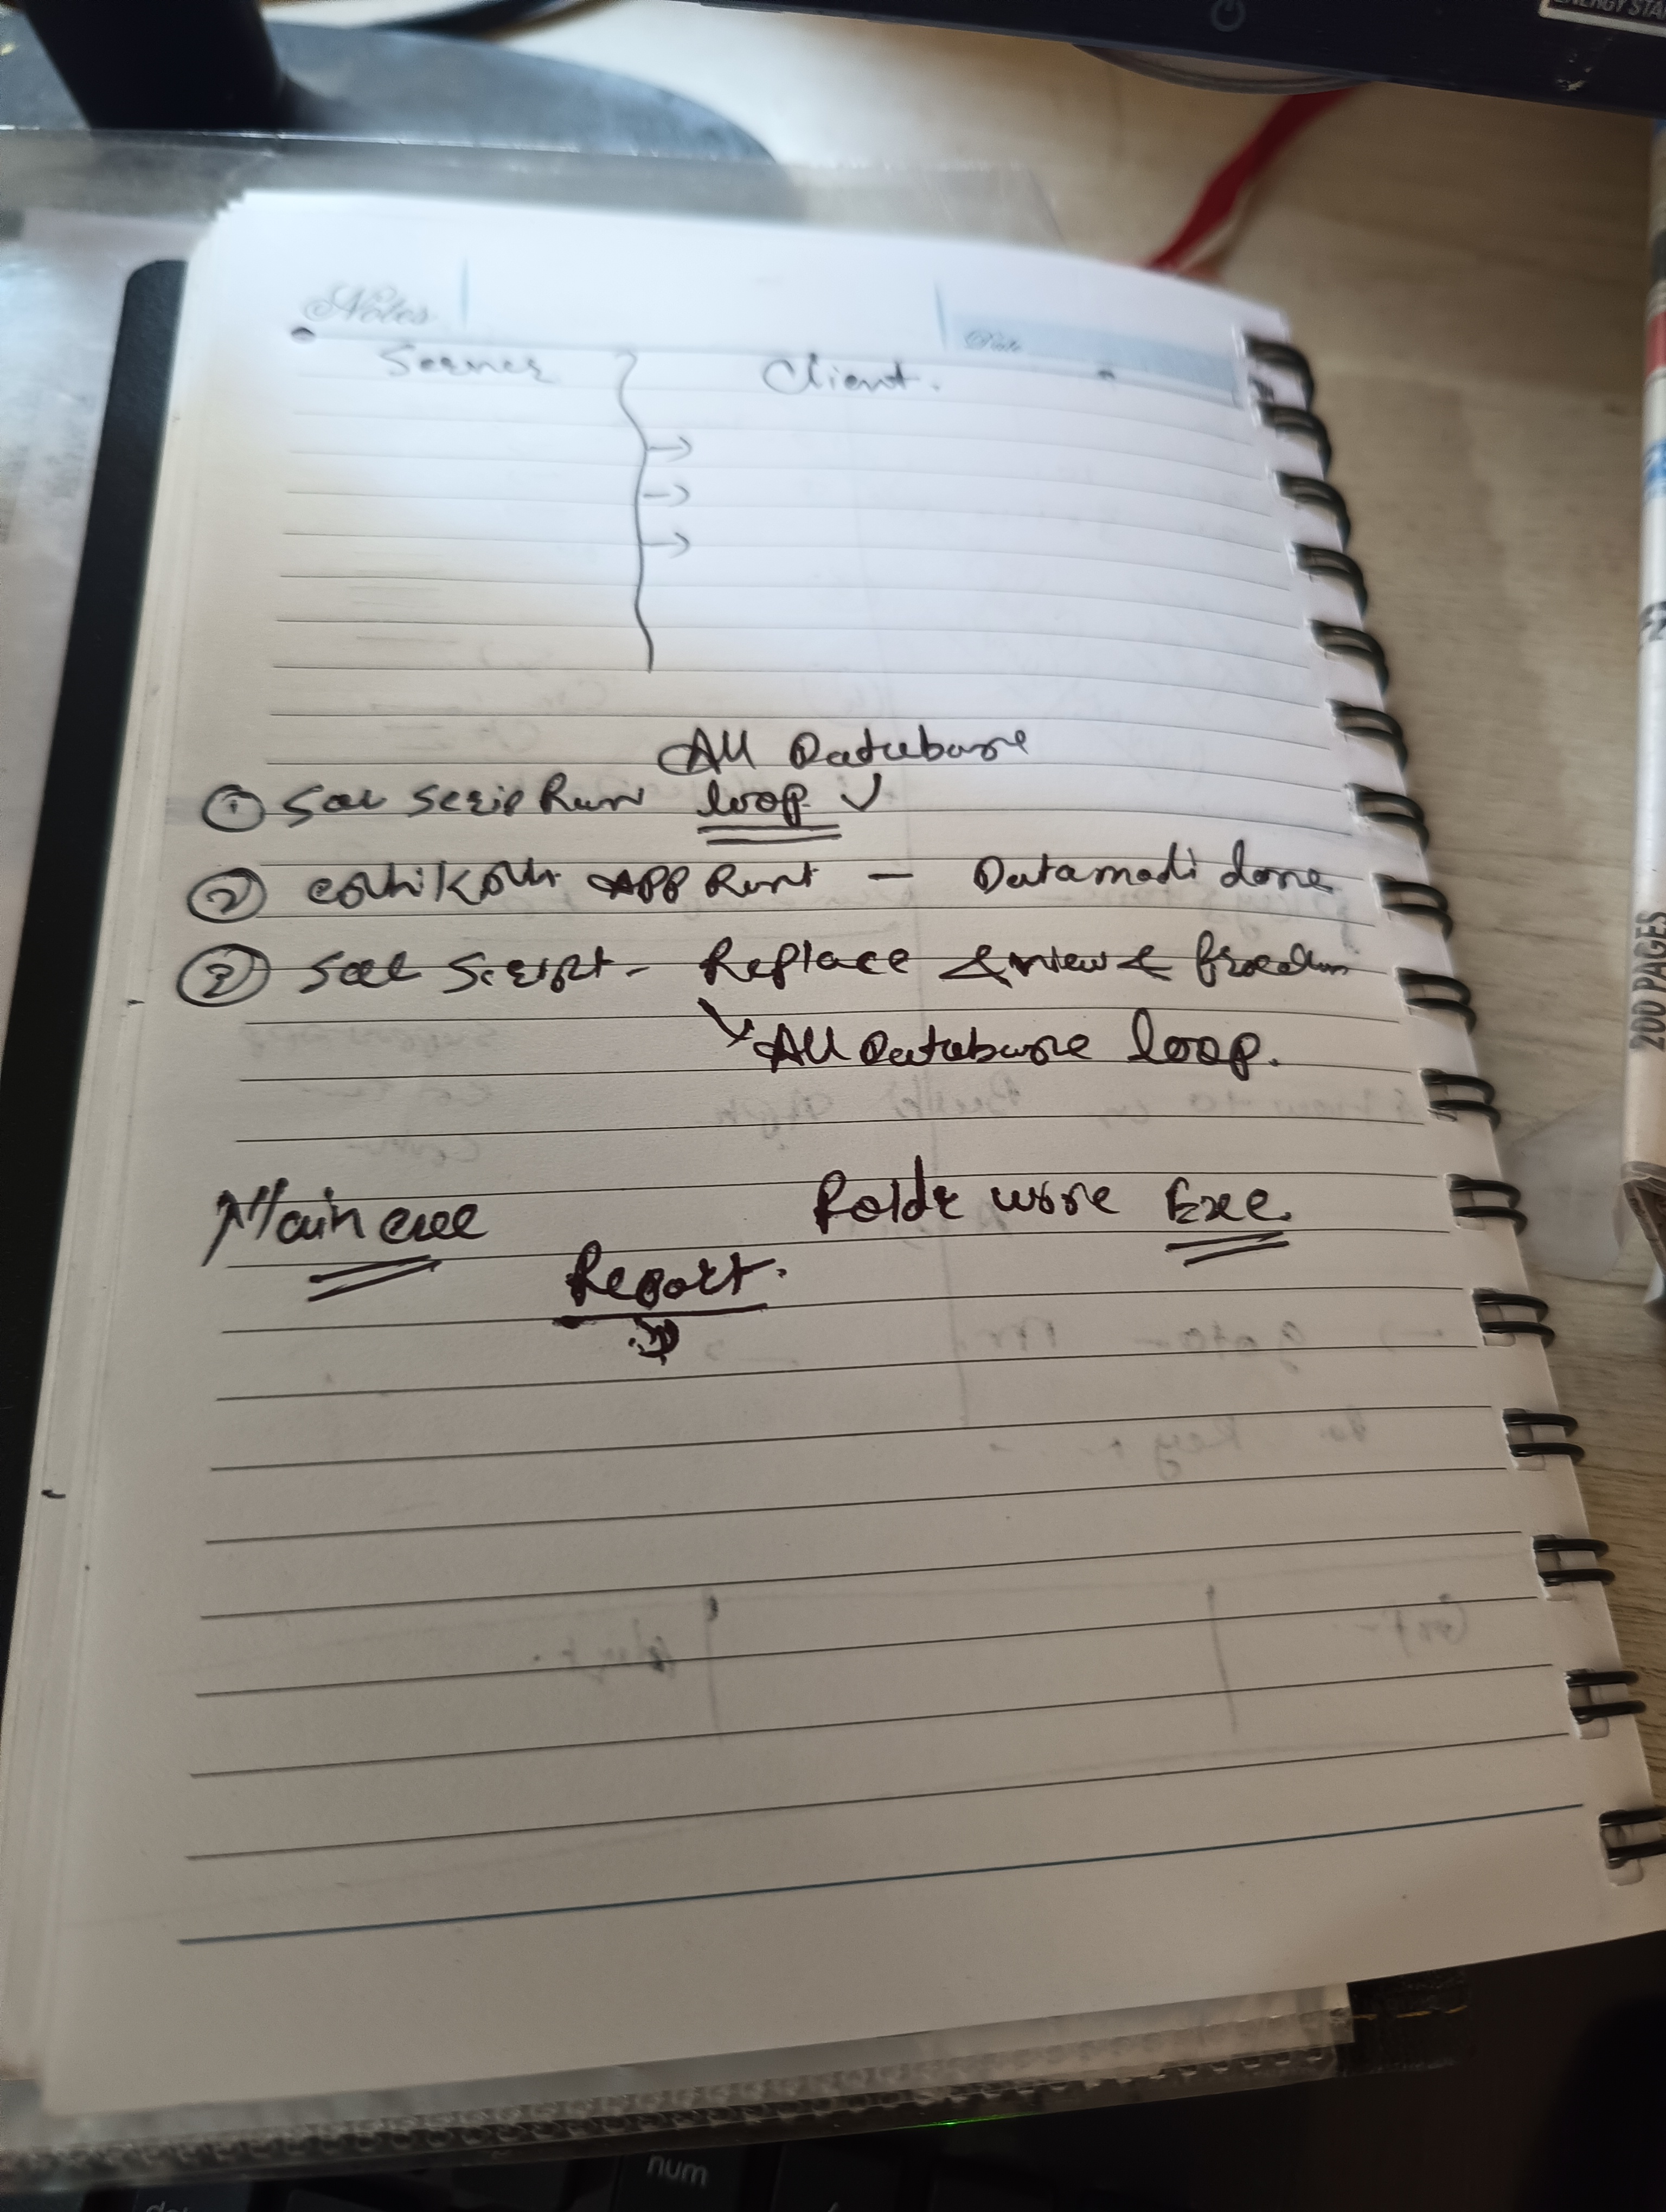 ENERGY STA
Notes
Server Client.
All Database
① Sql Scrip Run loop ✓
② APP Runt — Datamadi done
③ Sql Script - Replace & view &
All Database loop.
200 PAGES
Main exe Folde wise Exe.
Report.
num